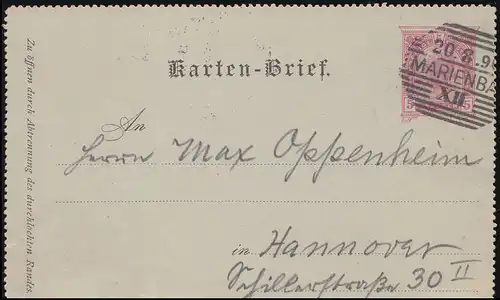 Zu öffnen durch Abtrennung des durchlochten Randes.
Karten-Brief.
20.8.9
MARIENBA
XII
5 5
An
Herrn Max Oppenheim
in Hannover
Schillerstraße 30 II